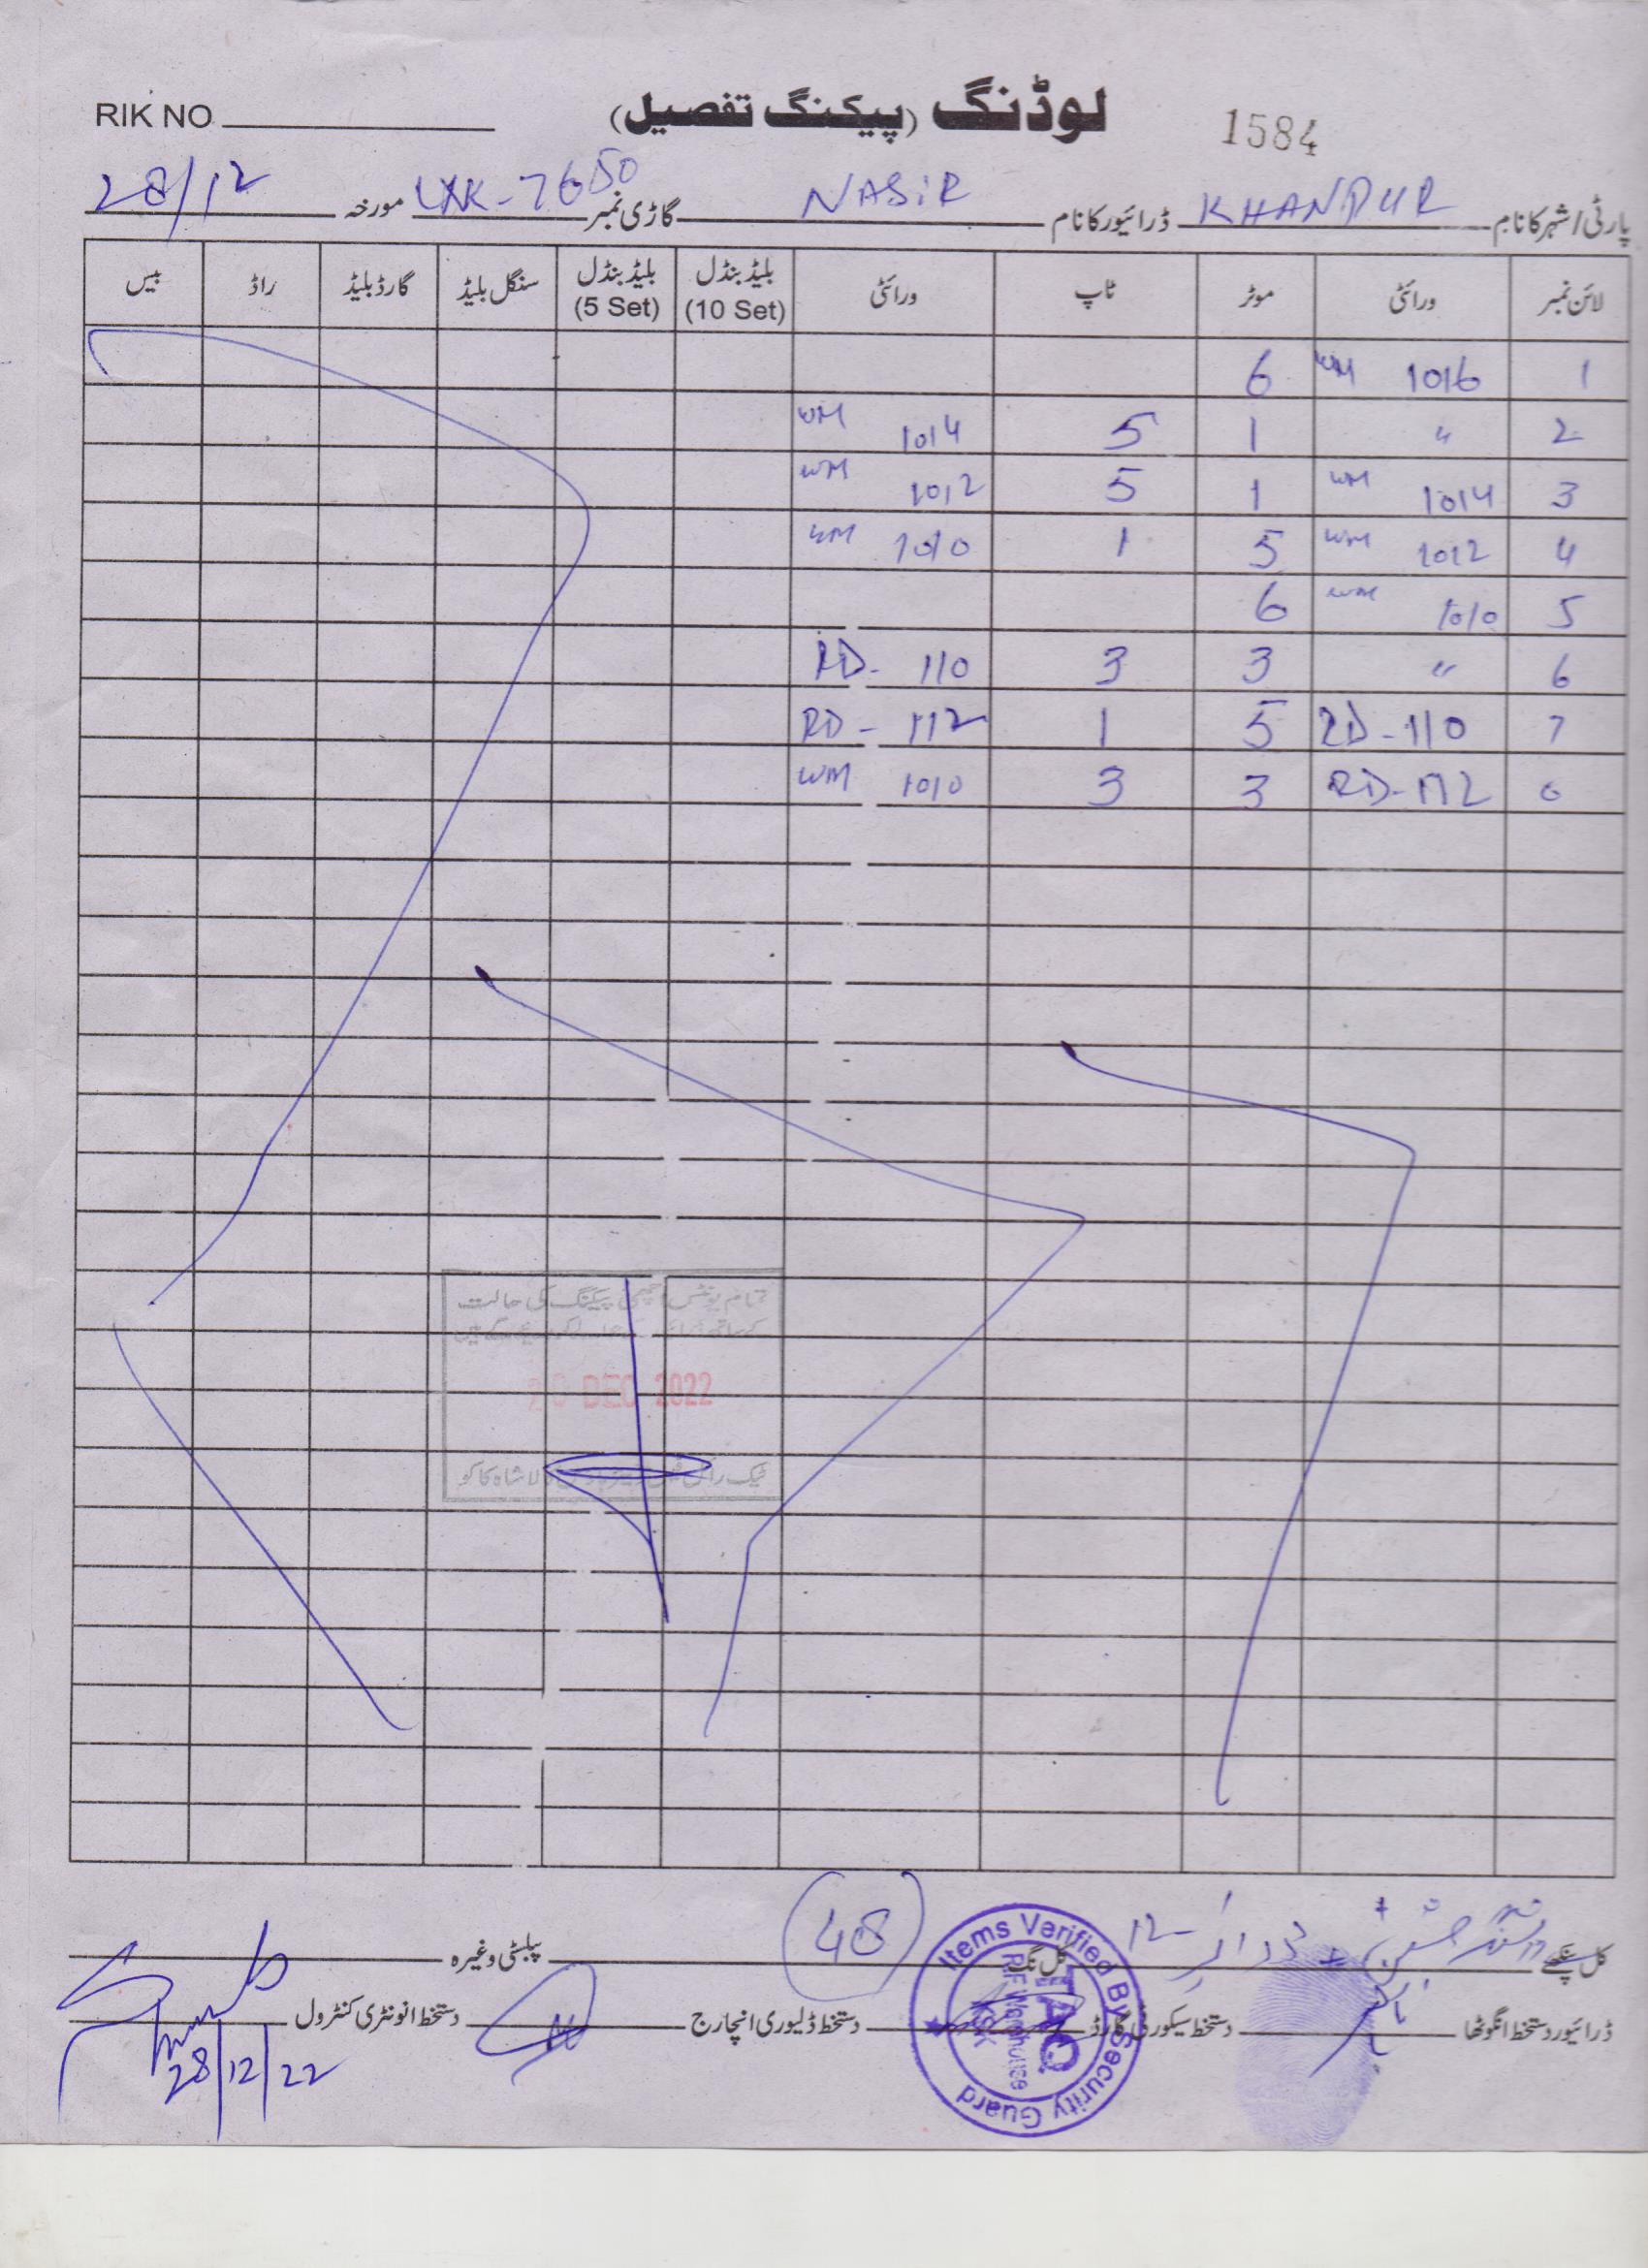 RIK NO لوڈنگ (پیکنگ تفصیل) 1584
پارٹی/شہر کا نام KHANPUR ڈرائیور کا نام NASIR گاڑی نمبر LXK-7650 مورخہ 28/12
لائن نمبر ورائٹی موٹر ٹاپ ورائٹی بلیڈ بنڈل (10 Set) بلیڈ بنڈل (5 Set) سنگل بلیڈ گارڈ بلیڈ راڈ بیس
1 WM 1016 6
2 〃 1 5 WM 1014
3 WM 1014 1 5 WM 1012
4 WM 1012 5 1 WM 1010
5 WM 1010 6
6 〃 3 3 RD- 110
7 RD-110 5 1 RD- 112
8 RD-112 3 3 WM 1010
تمام یونٹس اچھی پیکنگ کی حالت
DEC 2022
کل پنکھے کل نگ 48 پبلسٹی وغیرہ
ڈرائیور دستخط انگوٹھا دستخط سیکورٹی گارڈ دستخط ڈلیوری انچارج دستخط انونٹری کنٹرول
Items Verified By Security Guard
28/12/22